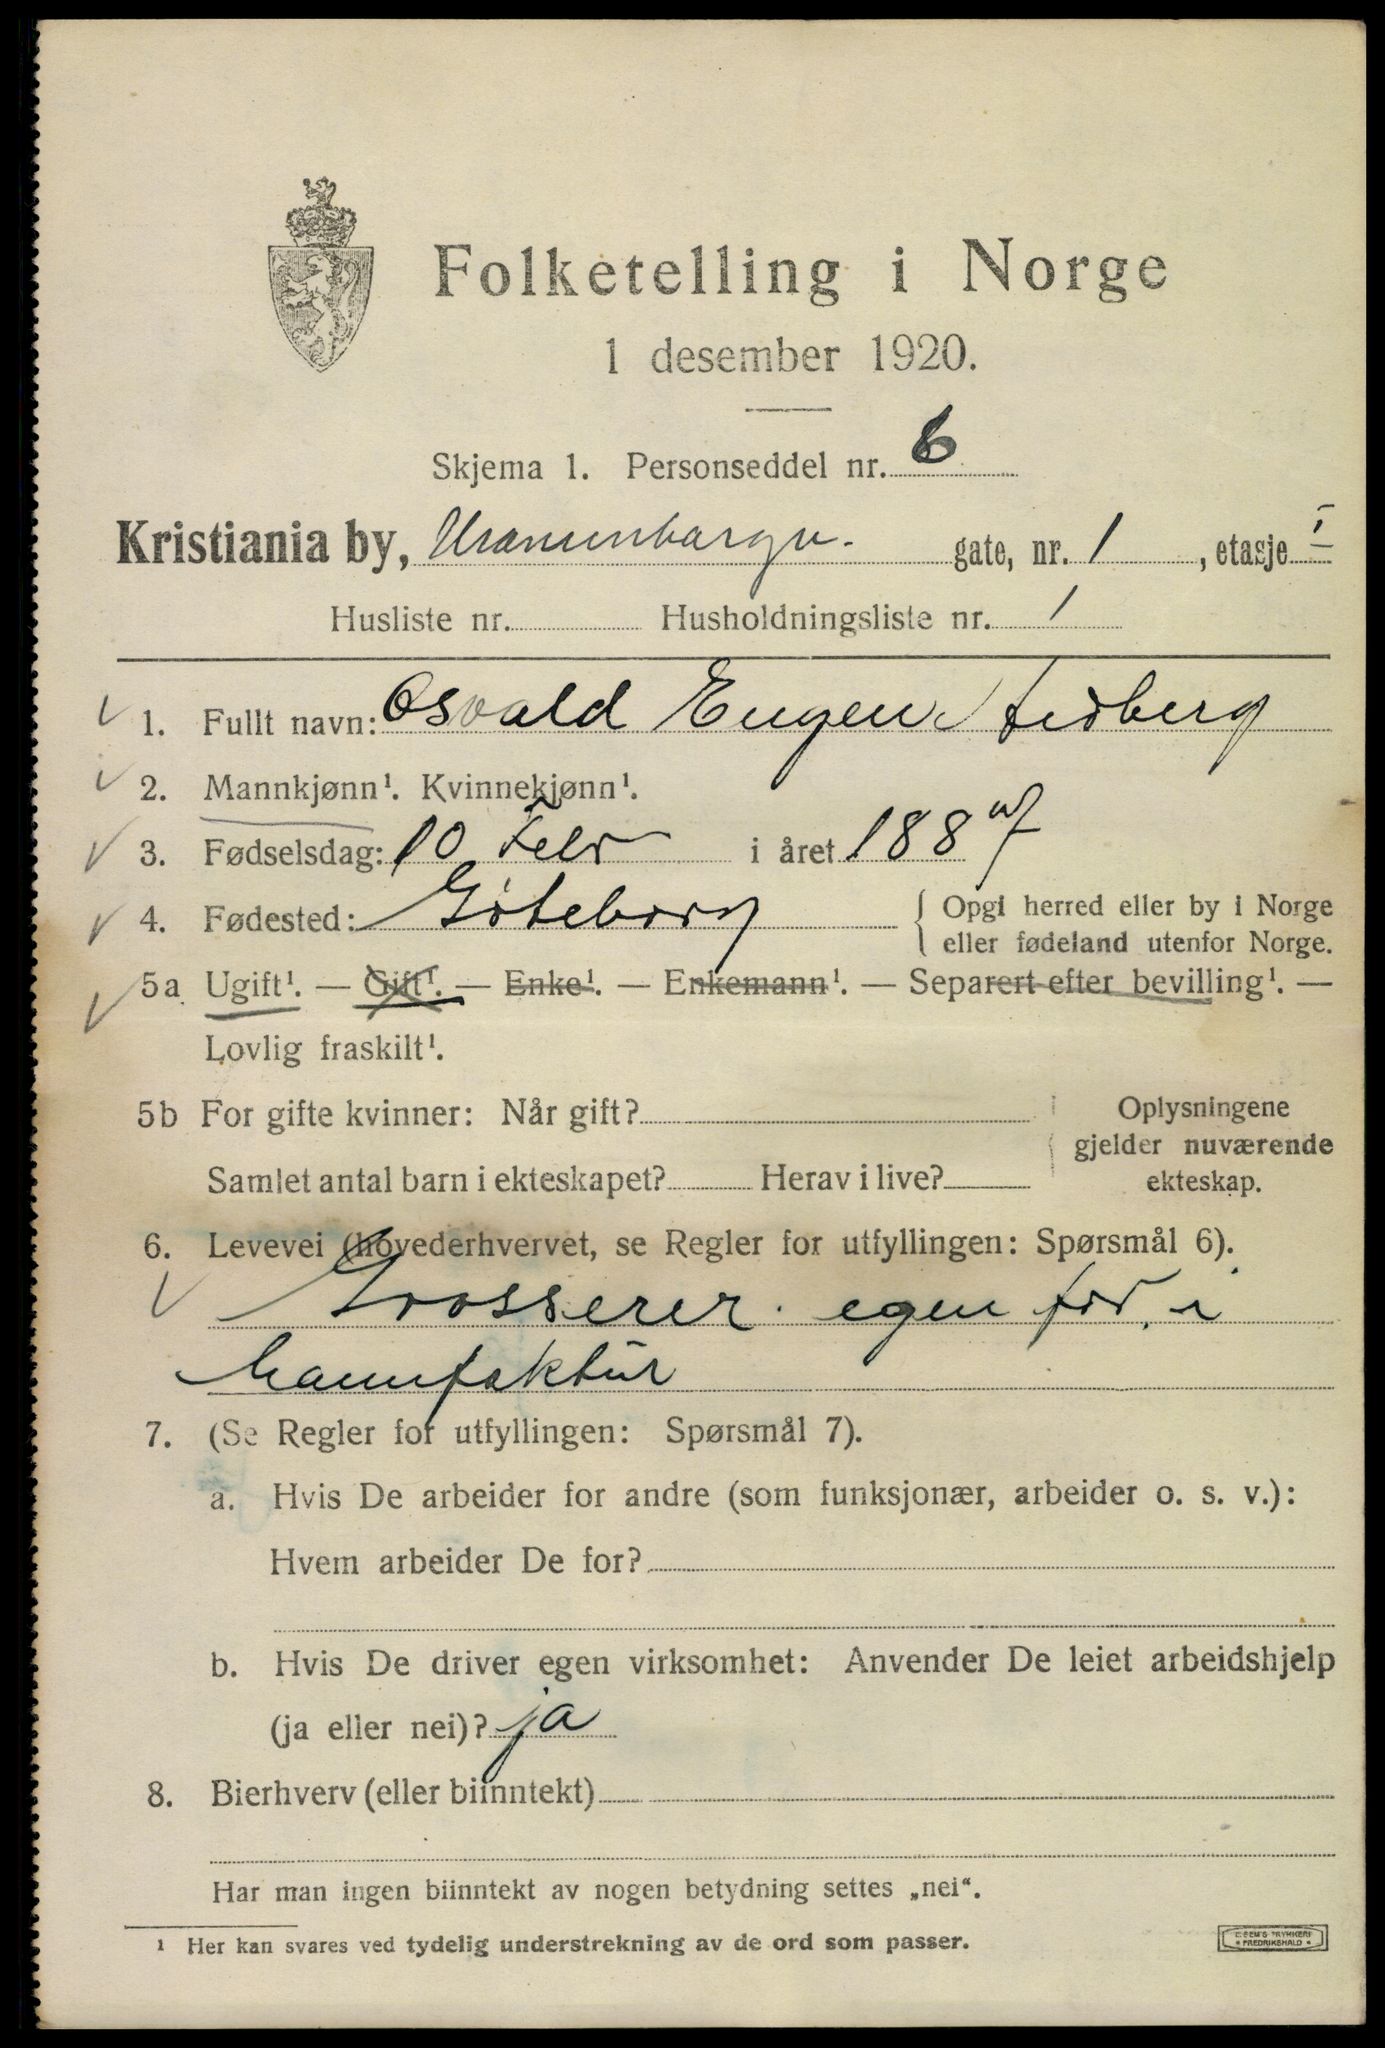 Folketelling i Norge
1 desember 1920.
Skjema 1. Personseddel nr. 6
Kristiania by, gate, nr. 1, etasje I
Husliste nr. Husholdningsliste nr. 1
1. Fullt navn: Osvald Eugen
2. Mannkjønn¹. Kvinnekjønn¹.
3. Fødselsdag: 10 Febr i året 1887
4. Fødested: Göteborg { Opgi herred eller by i Norge
eller fødeland utenfor Norge.
5a Ugift¹. — Gift¹. — Enke¹. — Enkemann¹. — Separert efter bevilling¹. —
Lovlig fraskilt¹.
5b For gifte kvinner: Når gift? Oplysningene
gjelder nuværende
Samlet antal barn i ekteskapet? Herav i live? ekteskap.
6. Levevei (hovederhvervet, se Regler for utfyllingen: Spørsmål 6).
Grosserer. egen for. i
Manufaktur
7. (Se Regler for utfyllingen: Spørsmål 7).
a. Hvis De arbeider for andre (som funksjonær, arbeider o. s. v.):
Hvem arbeider De for?
b. Hvis De driver egen virksomhet: Anvender De leiet arbeidshjelp
(ja eller nei)? ja
8. Bierhverv (eller biinntekt)
Har man ingen biinntekt av nogen betydning settes „nei“.
¹ Her kan svares ved tydelig understrekning av de ord som passer.
E. SEM'S TRYKKERI
* FREDRIKSHALD *